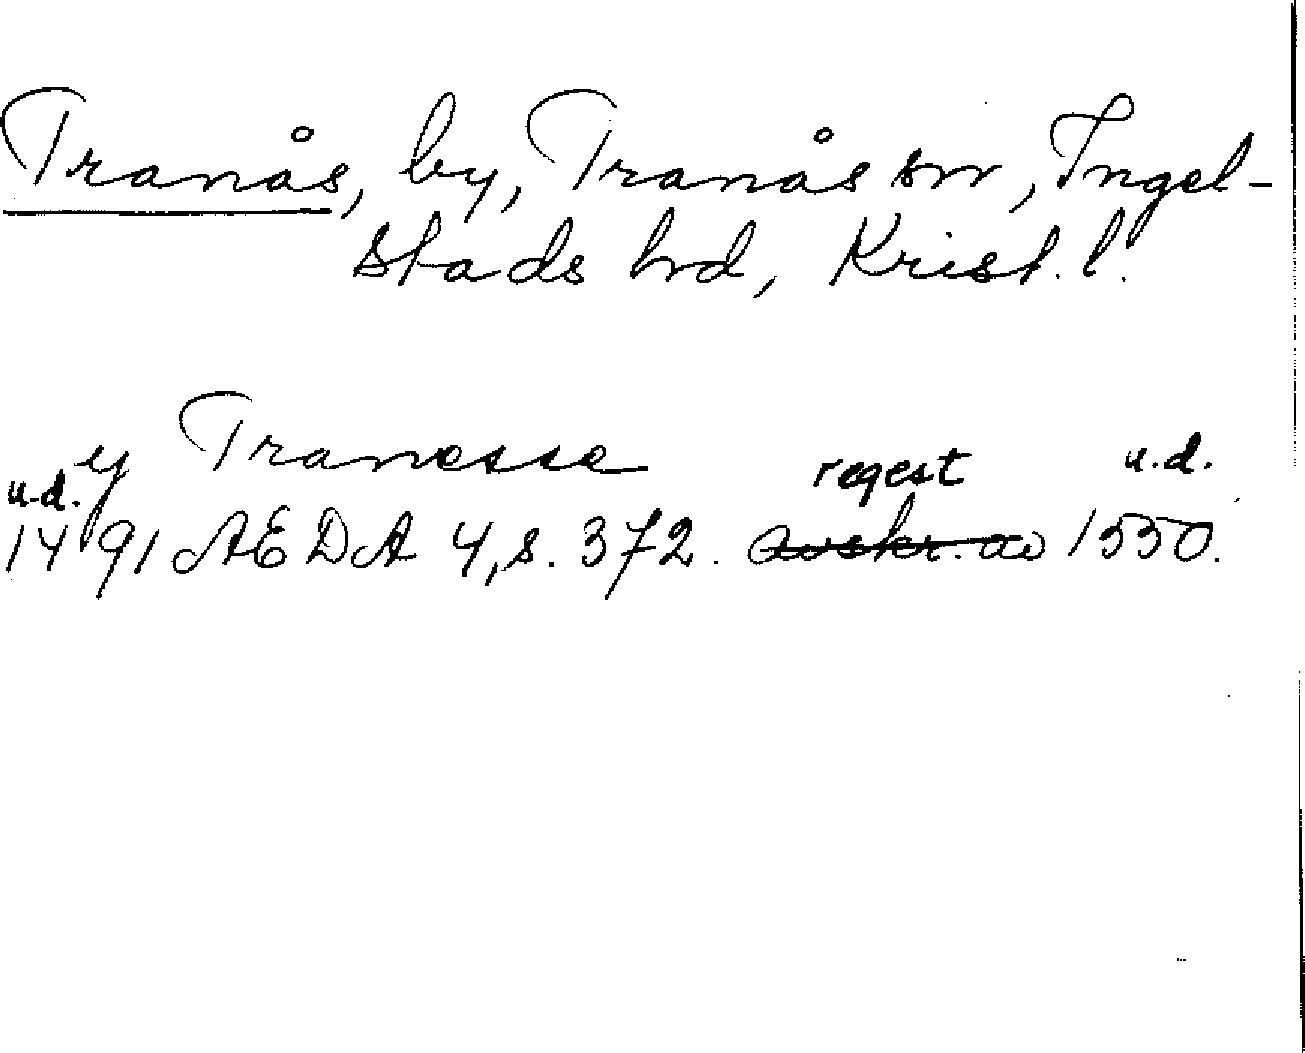 Tranås, by, Tranås sn, Ingel-
stads hd, Krist. l.
y Tranesse
u.d. regest u.d.
1491 AEDA 4, s. 372. avskr. av 1550.